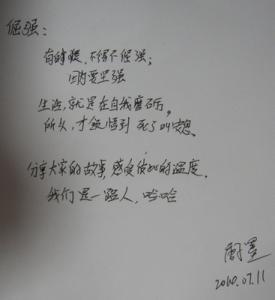 倔强：
有时候，不得不倔强；
因为要坚强
生活，就是在自我磨砺。
所以，才能悟到 死了叫想。
分享大家的故事，感受彼此的温度。
我们是一路人，哈哈
2010.07.11